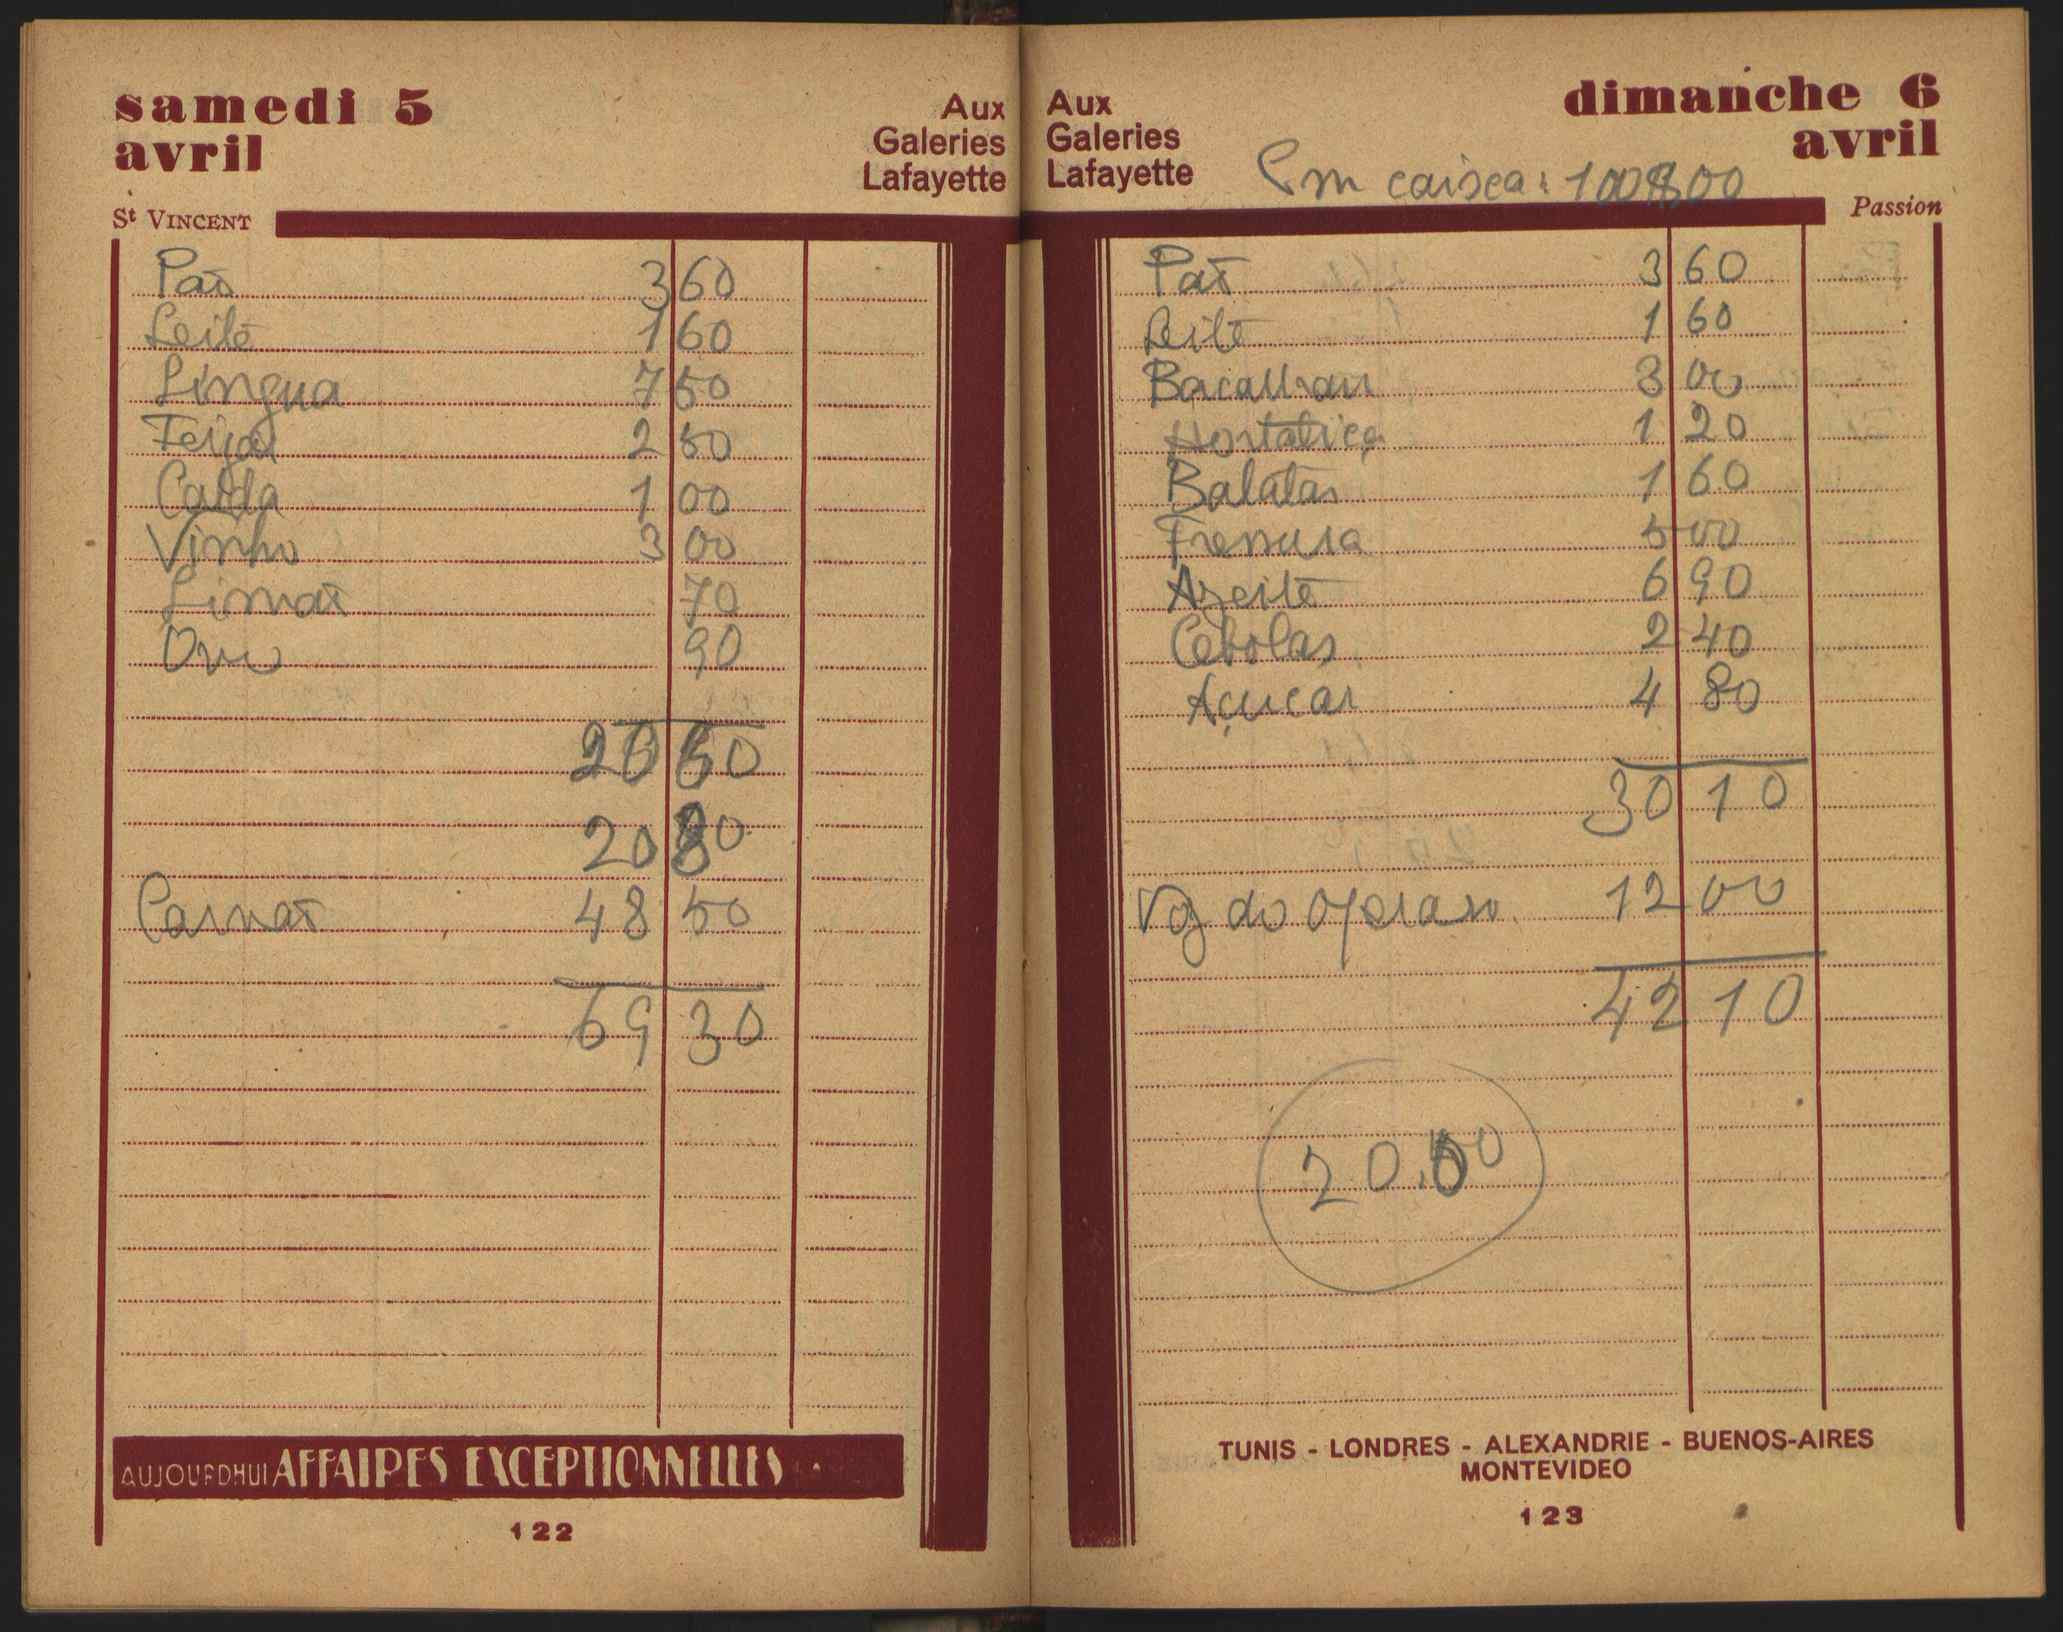 samedi 5
avril
Aux
Galeries
Lafayette
St VINCENT
Pão 3 60
Leite 1 60
Lingua 7 50
Feijão 2 50
Calda 1 00
Vinho 3 00
Limão 70
Ovo 90
20 60
20 80
Carvão 48 50
69 30
AUJOURDHUI AFFAIRES EXCEPTIONNELLES
122
Aux
Galeries
Lafayette
dimanche 6
avril
Em caixa: 100$00
Passion
Pão 3 60
Leite 1 60
Bacalhau 3 00
Hortaliça 1 20
Batatas 1 60
Fressura 5 00
Azeite 6 90
Cebolas 2 40
Açucar 4 80
30 10
Voz do Operario 12 00
42 10
20.50
TUNIS - LONDRES - ALEXANDRIE - BUENOS-AIRES
MONTEVIDEO
123